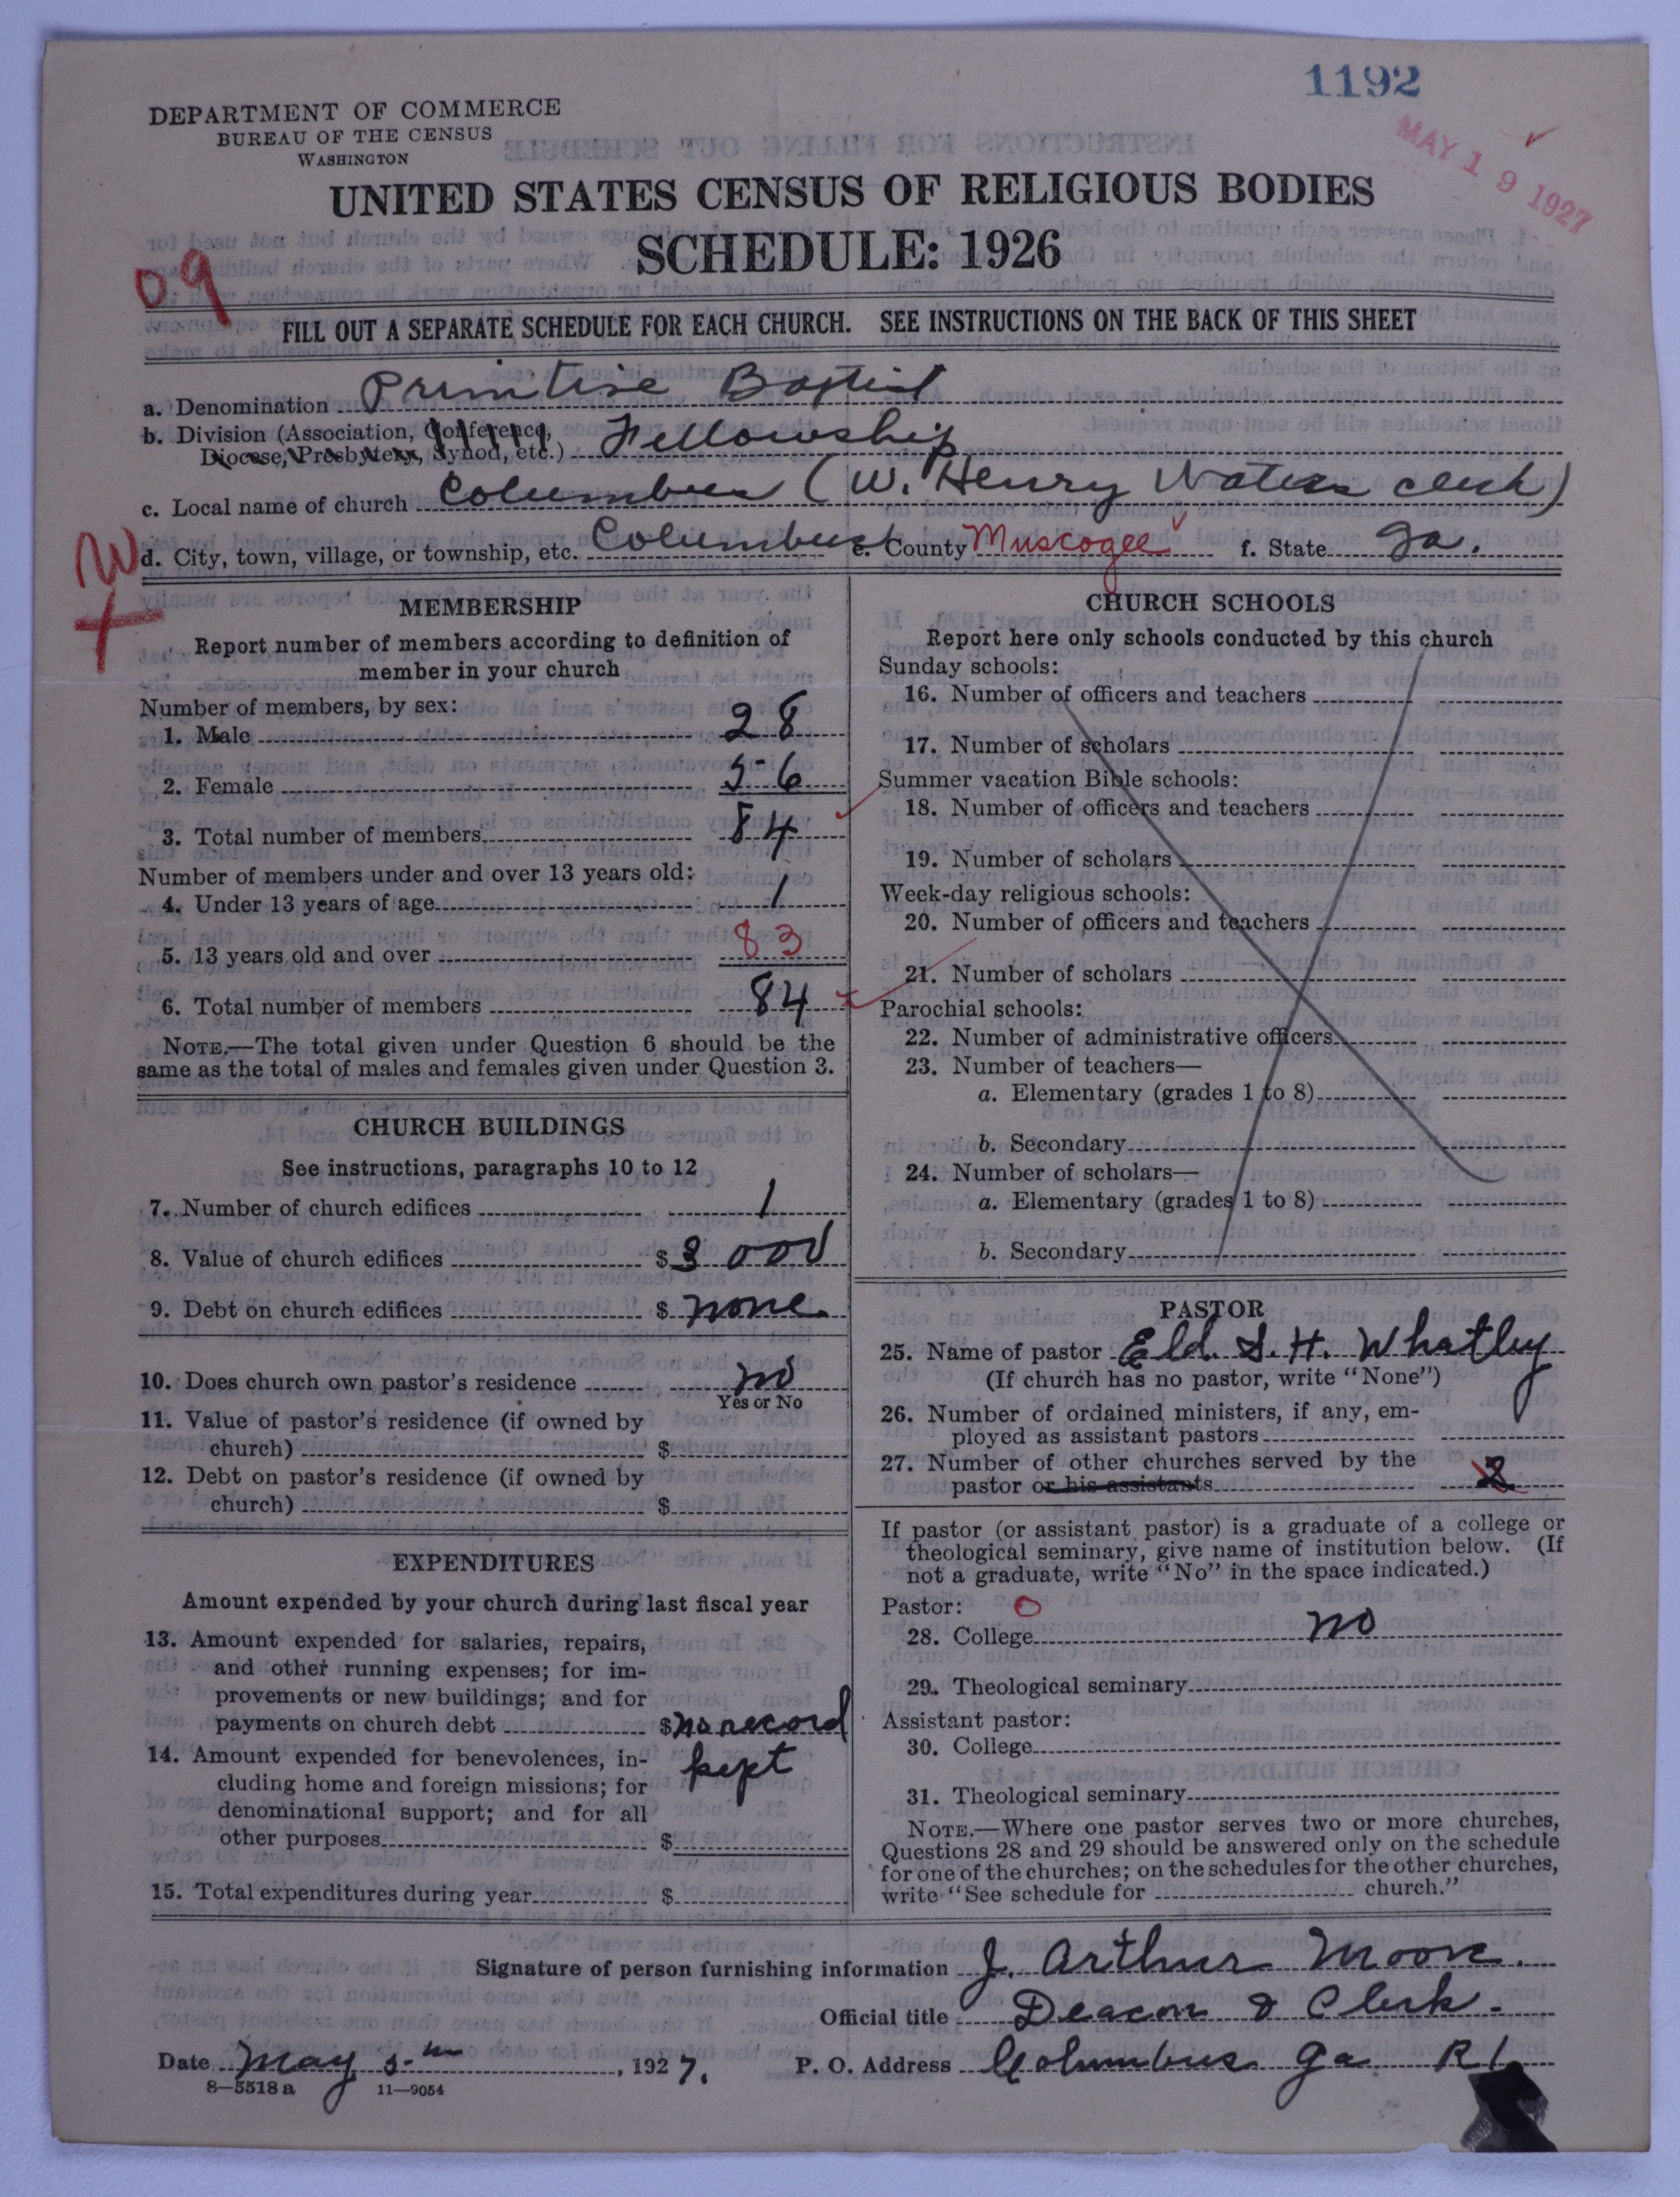 1192
MAY 19 1927
DEPARTMENT OF COMMERCE
BUREAU OF THE CENSUS
WASHINGTON
UNITED STATES CENSUS OF RELIGIOUS BODIES
SCHEDULE: 1926
09
FILL OUT A SEPARATE SCHEDULE FOR EACH CHURCH. SEE INSTRUCTIONS ON THE BACK OF THIS SHEET
a. Denomination Primitive Baptist
b. Division (Association, Conference, Diocese, Presbytery, Synod, etc.) Fellowship
c. Local name of church Columbus (W. Henry Waters clerk)
W
d. City, town, village, or township, etc. Columbus e. County Muscogee f. State Ga.
MEMBERSHIP
Report number of members according to definition of
member in your church
Number of members, by sex:
1. Male 28
2. Female 56
3. Total number of members 84
Number of members under and over 13 years old:
4. Under 13 years of age 1
5. 13 years old and over 83
6. Total number of members 84
NOTE.—The total given under Question 6 should be the
same as the total of males and females given under Question 3.
CHURCH BUILDINGS
See instructions, paragraphs 10 to 12
7. Number of church edifices 1
8. Value of church edifices $ 3 000
9. Debt on church edifices $ none.
10. Does church own pastor's residence no
Yes or No
11. Value of pastor's residence (if owned by
church) $
12. Debt on pastor's residence (if owned by
church) $
EXPENDITURES
Amount expended by your church during last fiscal year
13. Amount expended for salaries, repairs,
and other running expenses; for im-
provements or new buildings; and for
payments on church debt $ no record
14. Amount expended for benevolences, in- kept
cluding home and foreign missions; for
denominational support; and for all
other purposes $
15. Total expenditures during year $
CHURCH SCHOOLS
Report here only schools conducted by this church
Sunday schools:
16. Number of officers and teachers
17. Number of scholars
Summer vacation Bible schools:
18. Number of officers and teachers
19. Number of scholars
Week-day religious schools:
20. Number of officers and teachers
21. Number of scholars
Parochial schools:
22. Number of administrative officers
23. Number of teachers—
a. Elementary (grades 1 to 8)
b. Secondary
24. Number of scholars—
a. Elementary (grades 1 to 8)
b. Secondary
PASTOR
25. Name of pastor Eld. S. H. Whatley
(If church has no pastor, write "None")
26. Number of ordained ministers, if any, em-
ployed as assistant pastors
27. Number of other churches served by the
pastor or his assistants 2
If pastor (or assistant pastor) is a graduate of a college or
theological seminary, give name of institution below. (If
not a graduate, write "No" in the space indicated.)
Pastor: O
28. College no
29. Theological seminary
Assistant pastor:
30. College
31. Theological seminary
NOTE.—Where one pastor serves two or more churches,
Questions 28 and 29 should be answered only on the schedule
for one of the churches; on the schedules for the other churches,
write "See schedule for church."
Signature of person furnishing information J. Arthur Moore.
Official title Deacon & Clerk.
Date May 5th, 1927. P. O. Address Columbus Ga R1
8—5518 a 11—9054